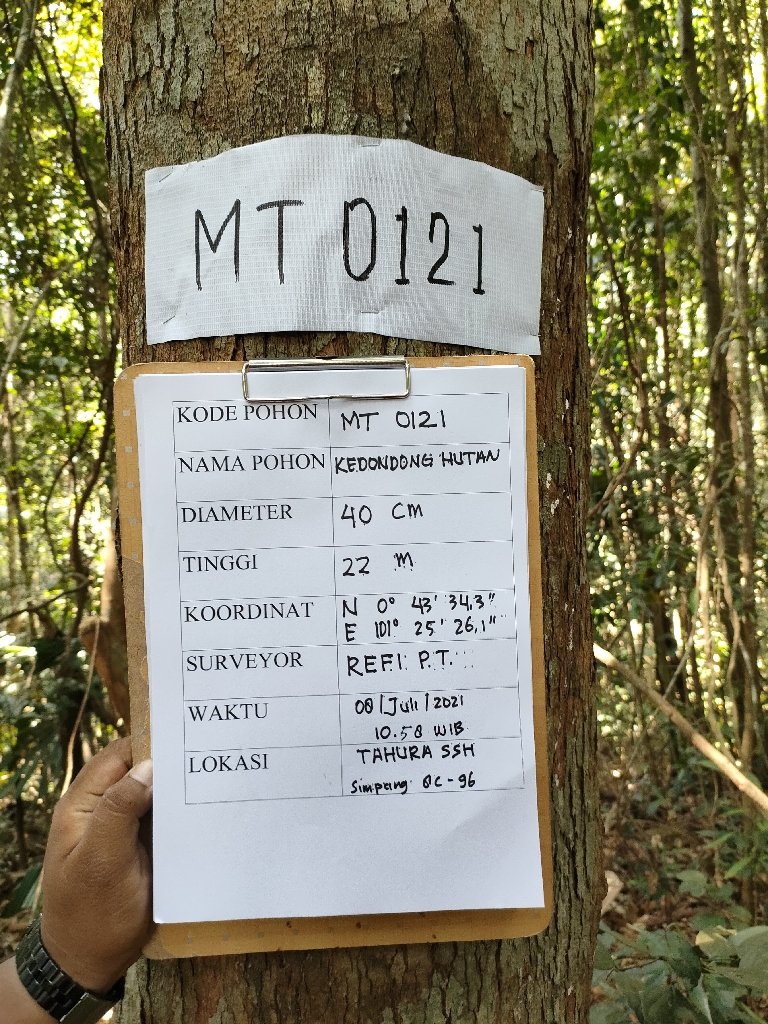 MT 0121
KODE POHON MT 0121
NAMA POHON KEDONDONG HUTAN
DIAMETER 40 CM
TINGGI 22 m
KOORDINAT N 0° 43' 34,3"
E 101° 25' 26,1"
SURVEYOR REFI P.T.
WAKTU 08/Juli/2021
10.58 WIB
LOKASI TAHURA SSH
Simpang QC-96